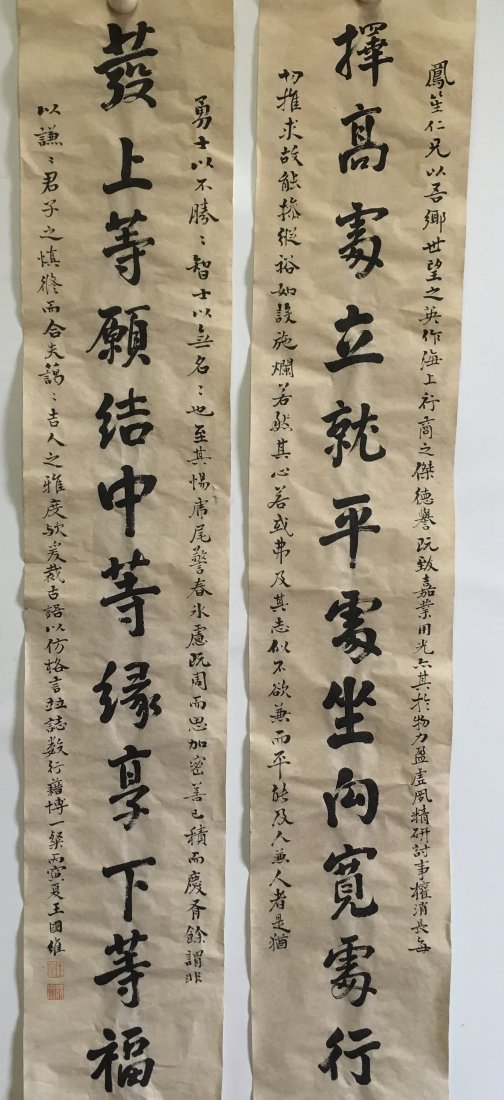 鳳笙仁兄以吾鄉世望之英作海上行商之傑德譽既致嘉業用光亦其於物力盈虛夙精研討事權消長每
擇高處立就平處坐向寬處行
切推求故能操縱裕如設施爛若然其心若或弗及其志似不欲兼而平能及人兼人者是猶
勇士以不勝〻智士以無名〻也至其惕虎尾警春冰慮既周而思加密善已積而慶有餘謂非
發上等願結中等緣享下等福
以謙〻君子之慎修而合夫藹〻吉人之雅度歟爰裁古語以仿格言並誌數行藉博一粲丙寅夏王國維